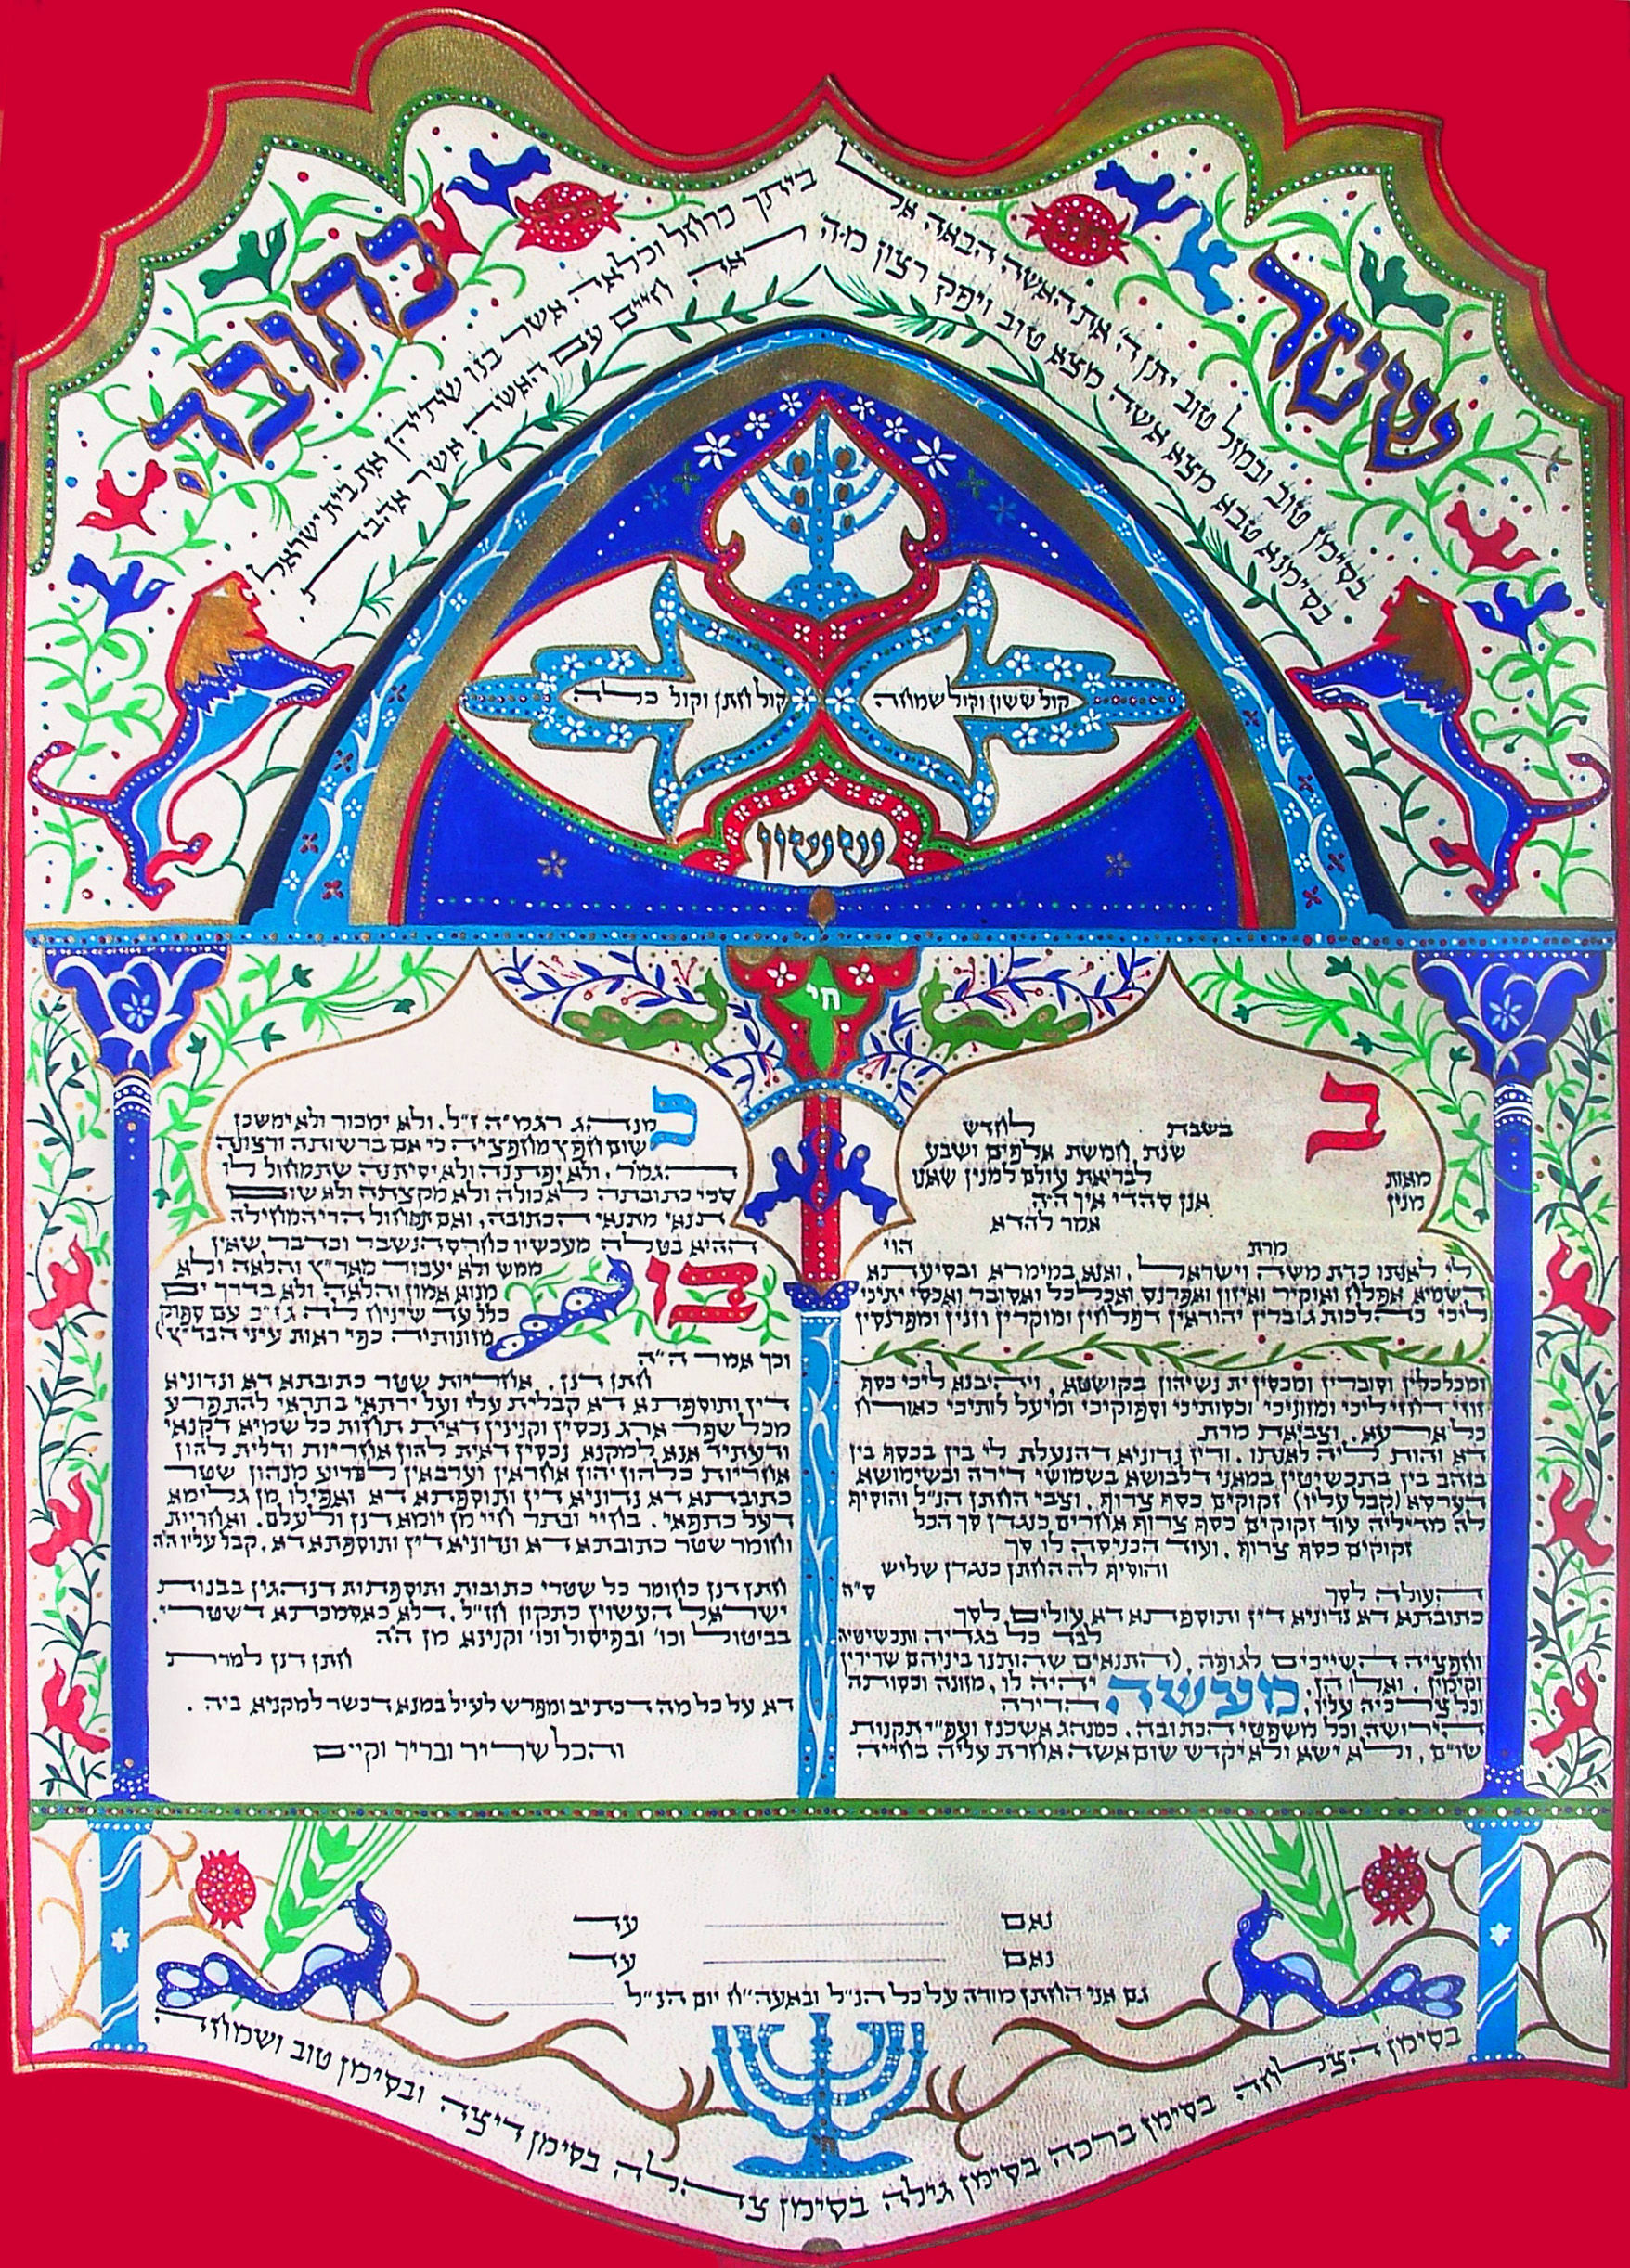 שטר
כתובה
בסימן טוב ובמזל טוב יתן ה' את האשה הבאה אל
ביתך כרחל וכלאה אשר בנו שתיהן את בית ישראל
בסימנא טבא מצא אשה מצא טוב ויפק רצון מה'
ראה חיים עם האשה אשר אהבת
קול ששון וקול שמחה
קול חתן וקול כלה
ששון
חי
ב
בשבת לחדש
שנת חמשת אלפים ושבע
מאות לבריאת עולם למנין שאנו
מנין אנן סהדי איך הה
אמר להדא
מרת הוי
לי לאנתו כדת משה וישראל. ואנא במימרא ובסיעתא
דשמיא אפלח ואוקיר ואיזון ואפרנס ואכלכל ואסובר ואכסי יתיכי
ליכי כהלכות גוברין יהודאין דפלחין ומוקרין וזנין ומפרנסין
ומכלכלין וסוברין ומכסין ית נשיהון בקושטא. ויהיבנא ליכי כסף
זוזי דחזי ליכי ומזוניכי וכסותיכי וסיפוקיכי ומיעל לותיכי כאורח
כל ארעא. וצביאת מרת
דא והות ליה לאנתו. ודין נדוניא דהנעלת לי בין בכסף בין
בזהב בין בתכשיטין במאני דלבושא בשמושי דירה ובשימושא
דערסא (קבל עליו) זקוקים כסף צרוף. וצבי החתן הנ״ל והוסיף
לה מדיליה עוד זקוקים כסף צרוף אחרים כנגדן סך הכל
זקוקים כסף צרוף. ועוד הכניסה לו סך
והוסיף לה החתן כנגדן שליש
העולה לסך ס״ה
כתובתא דא נדוניא דין ותוספתא דא עולים לסך
לבד כל בגדיה ותכשיטיה
וחפציה השייכים לגופה. (התנאים שהותנו ביניהם שרירין
וקימין. ואלו הן: מעשה ידיה לו, מזונה וכסותה
וכל צרכיה עליו. הדירה
הירושה וכל משפטי הכתובה. כמנהג אשכנז ועפ״י תקנות
שו״ם. ולא ישא ולא יקדש שום אשה אחרת עליה בחייה
כ
מנהג רגמ״ה ז״ל. ולא ימכור ולא ימשכן
שום חפץ מחפציה כי אם ברשותה ורצונה
הגמור. ולא יפתנה ולא יסיתנה שתמחול לו
סכי כתובתה לא כולה ולא מקצתה ולא שום
תנאי מתנאי הכתובה. ואם תמחול הרי המחילה
ההיא בטלה מעכשיו כחרס הנשבר וכדבר שאין
בו ממש ולא יעבור מאר״ץ והלאה ולא
מנוא אמון והלאה, ולא בדרך ים
כלל עד שיניח לה ג' זיב עם ספוק
מזונותיה כפי ראות עיני הבד״ץ)
וכך אמר ה״ה
חתן דנן. אחריות שטר כתובתא דא ונדוניא
דין ותוספתא דא קבלית עלי ועל ירתאי בתראי להתפרע
מכל שפר ארג נכסין וקנינין דאית תחות כל שמיא דקנאי
ודעתיד אנא למקנא נכסין דאית להון אחריות ודלית להון
אחריות כלהון יהון אחראין וערבאין לפרוע מנהון שטר
כתובתא דא נדוניא דין ותוספתא דא ואפילו מן גלימא
דעל כתפאי. בחיי ובתר חיי מן יומא דנן ולעלם. ואחריות
וחומר שטר כתובתא דא ונדוניא דין ותוספתא דא. קבל עליו הה
חתן דנן כחומר כל שטרי כתובות ותוספתות דנהגין בבנות
ישראל העשוין כתקון חז״ל. דלא כאסמכתא דשטרי.
בביטול וכו' ובפיסול וכו' וקנינא מן הה
חתן דנן למרת
דא על כל מה דכתיב ומפרש לעיל במנא דכשר למקניא ביה.
והכל שריר ובריר וקיים
נאם עד
נאם עד
גם אני החתן מודה על כל הנ״ל ובאעה״ח יום הנ״ל
בסימן הצלחה בסימן ברכה בסימן גילה בסימן צהלה בסימן דיצה ובסימן טוב ושמחה